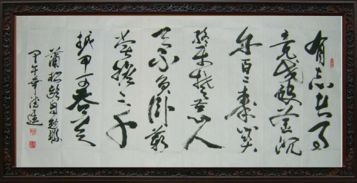 有志者事
竟成破釜沉
舟百二秦关
终属楚苦心人
天不负卧薪
尝胆三千
越甲可吞吴
蒲松龄自勉联